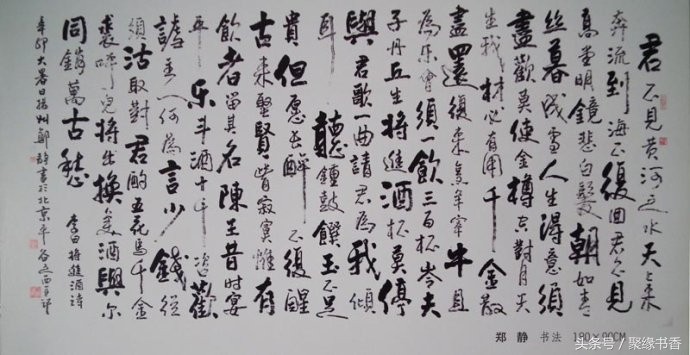 君不見黄河之水天上来
奔流到海不復回君不見
高堂明鏡悲白髮朝如青
丝暮成雪人生得意須
盡歡莫使金樽空對月天
生我材必有用千金散
盡還復来烹羊宰牛且
為乐會須一飲三百杯岑夫
子丹丘生将進酒杯莫停
與君歌一曲請君為我傾
耳聽鐘鼓饌玉不足
貴但愿長醉不復醒
古来聖賢皆寂寞惟有
飲者留其名陳王昔時宴
平乐斗酒十千恣歡
謔主人何為言少錢徑
須沽取對君酌五花馬千金
裘呼兒将出換美酒與尔
同銷萬古愁 李白将進酒詩
辛卯大暑日揚州鄭靜書於北京平谷
郑静 书法 180×90CM
头条号/聚缘书香